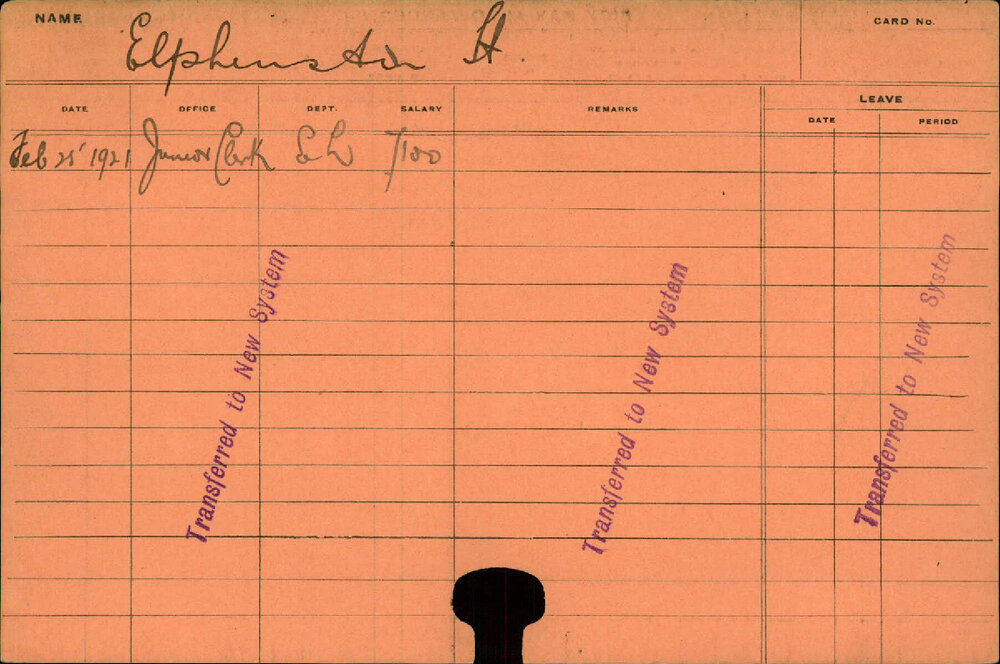 NAME
Elphenston H.
CARD No.
DATE
OFFICE
DEPT.
SALARY
REMARKS
LEAVE
DATE
PERIOD
Feb 21 1921 Junior Clerk 100
Transferred to New System
Transferred to New System
Transferred to New System